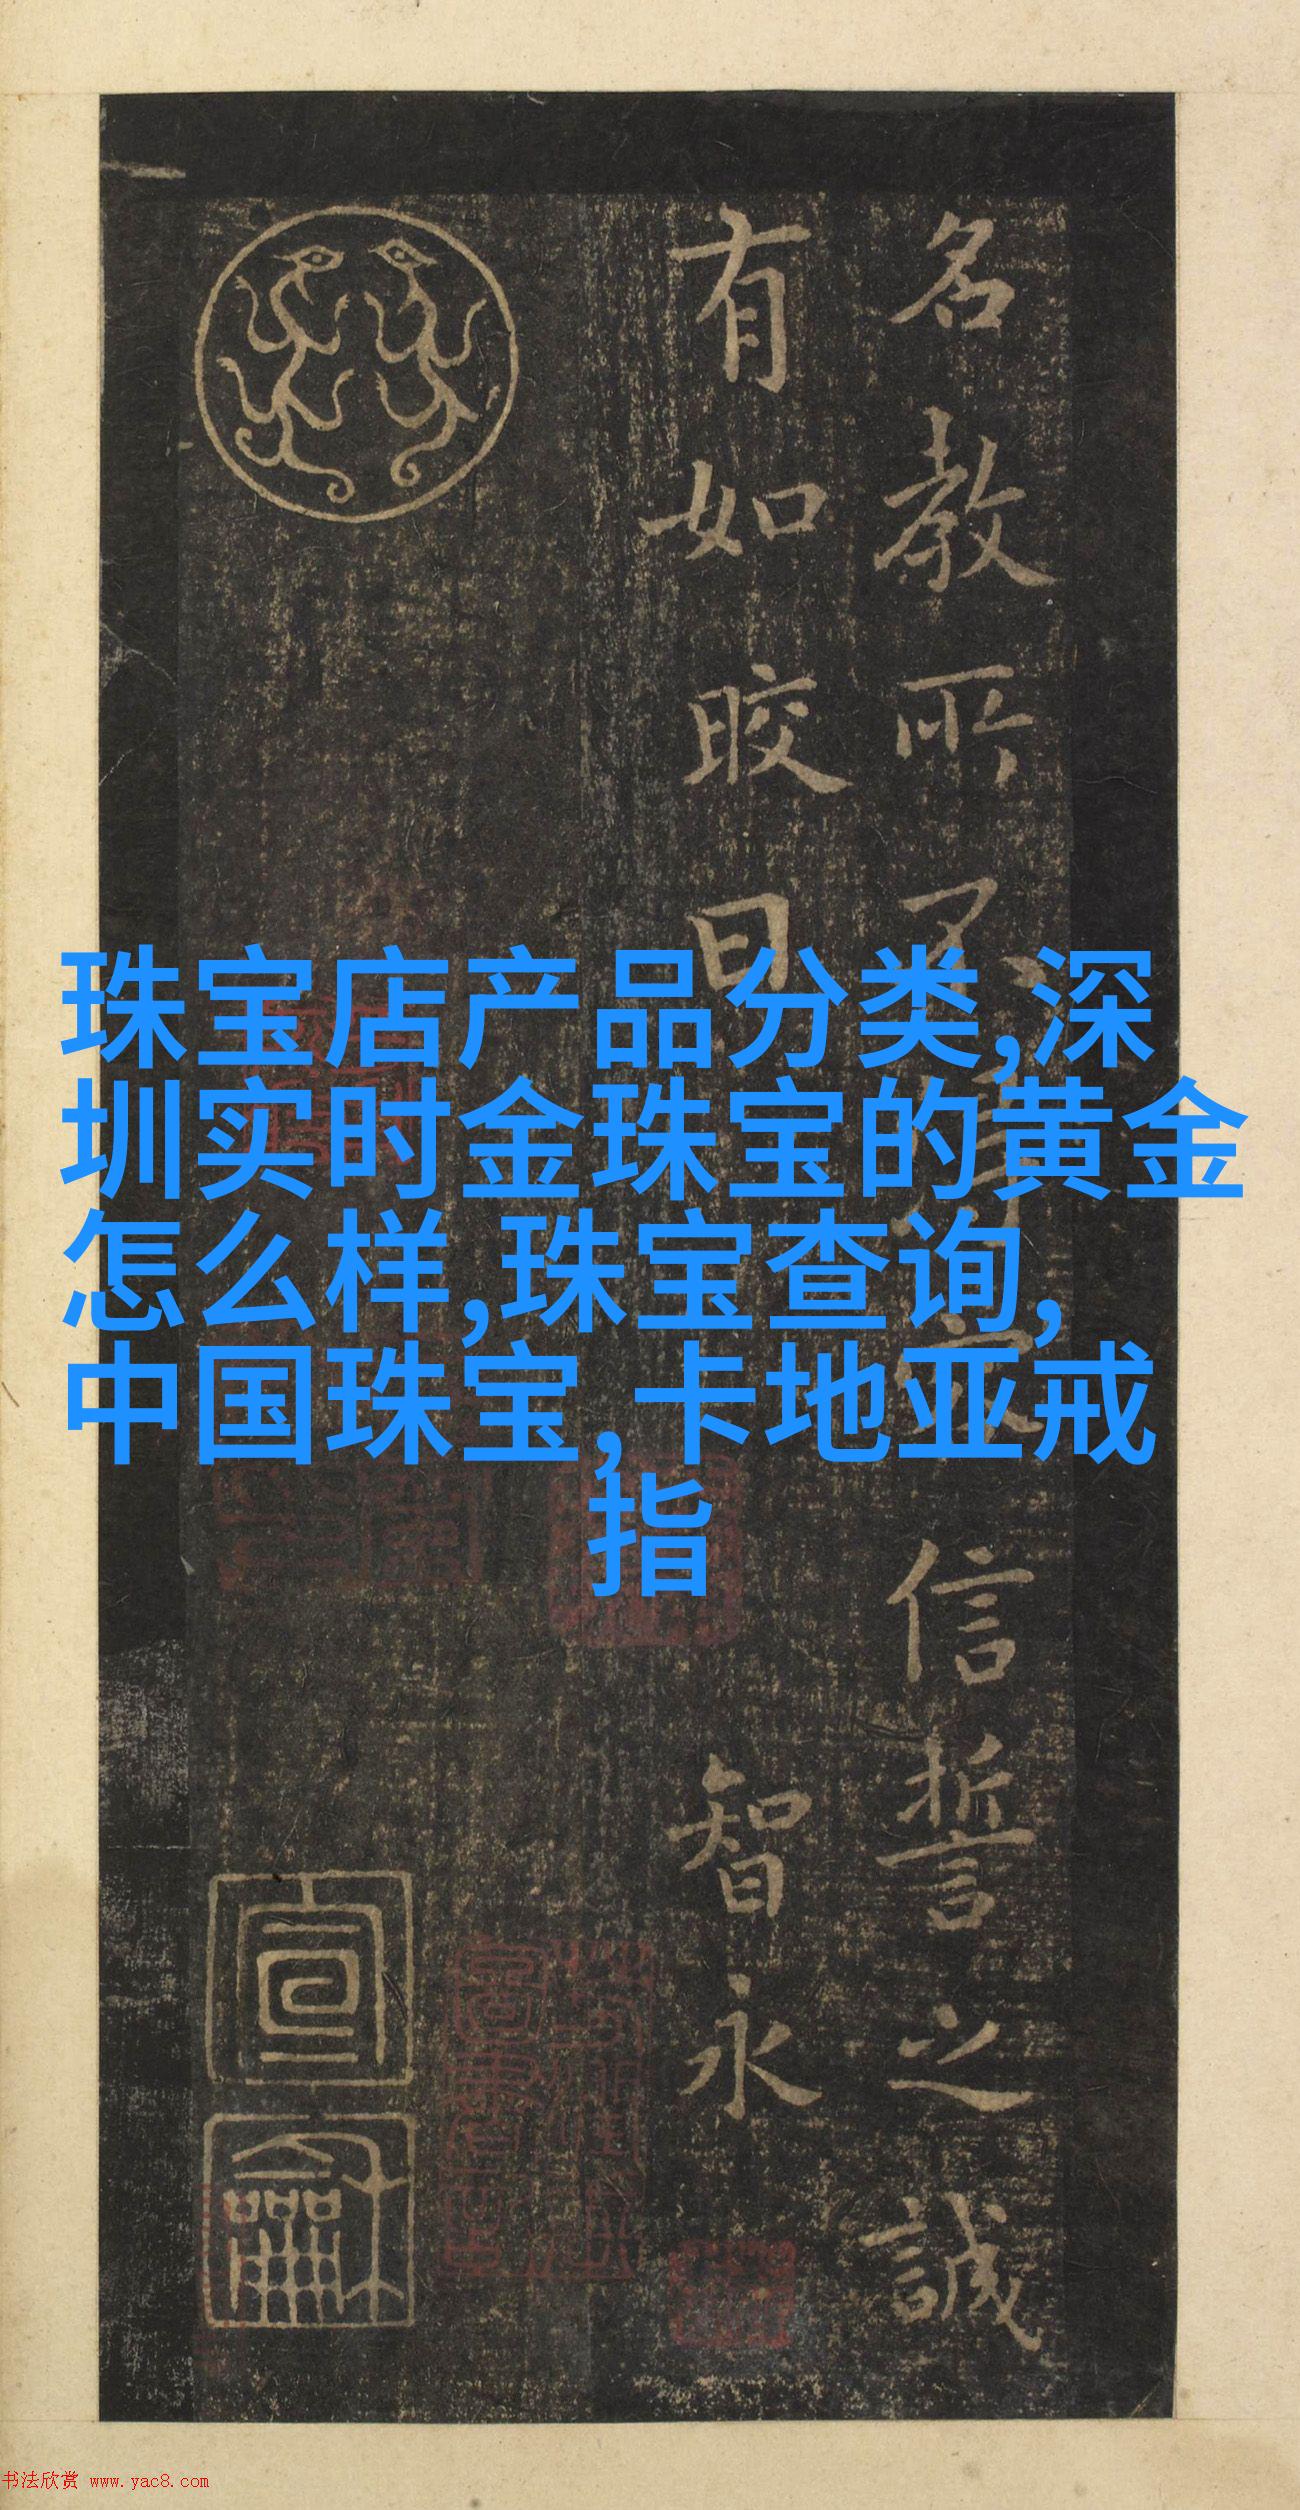 珠宝店产品分类,深
圳实时金珠宝的黄金
怎么样,珠宝查询,
中国珠宝,卡地亚戒
指
名教所不
信誓之誠
有如晈日
智永
书法欣赏 www.yac8.com